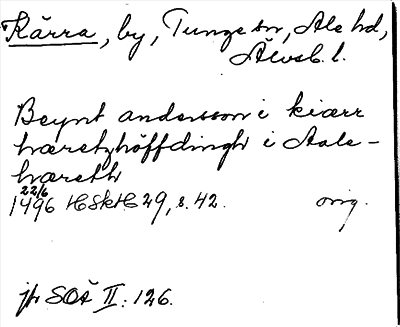 Kärra, by, Tunge sn, Ale hd,
Älvsb. l.
Beynt andersson i kiærr
hæretzhöffdingh i Aale-
hæreth
22/6
1496 HSkH 29, s. 42. orig.
jfr SOÄ II: 126.